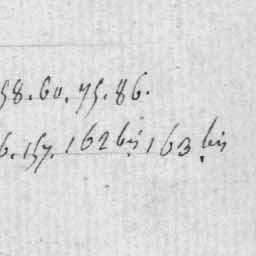 58. 60. 75. 86.
6. 157. 162 bis 163 bis